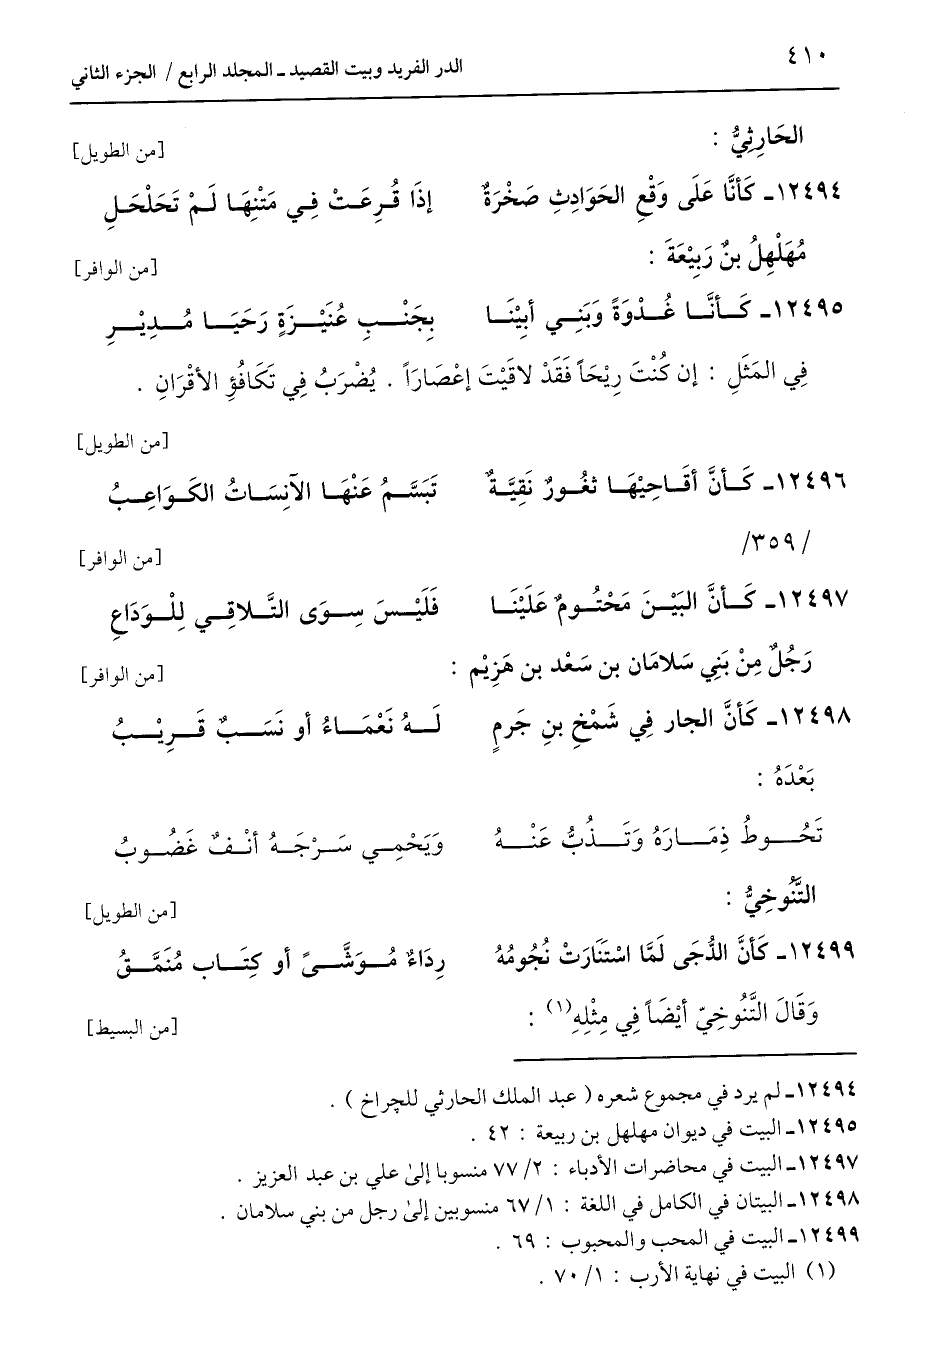 ٤١٠
الدر الفريد وبيت القصيد ـ المجلد الرابع / الجزء الثاني
الحَارِثِيُّ :
[من الطويل]
١٢٤٩٤ـ كَأنَّا عَلَى وَقْعِ الحَوَادِثِ صَخْرَةٌ إذَا قُرِعَتْ فِي مَتْنِهَا لَمْ تَحَلْحَلِ
مُهَلْهِلُ بنُ رَبِيْعَةَ :
[من الوافر]
١٢٤٩٥ـ كَأنَّا غُدْوَةً وَبَنِي أبِيْنَا بِجَنْبِ عُنَيْزَةٍ رَحَيَا مُدِيْرِ
فِي المَثَلِ : إن كُنْتَ رِيْحَاً فَقَدْ لاقَيْتَ إعْصَارَاً . يُضْرَبُ فِي تَكَافُؤِ الأقْرَانِ .
[من الطويل]
١٢٤٩٦ـ كَأنَّ أقَاحِيْهَا ثغُورٌ نَقِيَّةٌ تَبَسَّمُ عَنْهَا الآنِسَاتُ الكَوَاعِبُ
/٣٥٩/
[من الوافر]
١٢٤٩٧ـ كَأنَّ البَيْنَ مَحْتُومٌ عَلَيْنَا فَلَيْسَ سِوَى التَّلاقِي لِلْوَدَاعِ
رَجُلٌ مِنْ بَنِي سَلامَان بن سَعْد بن هَزِيْم :
[من الوافر]
١٢٤٩٨ـ كَأنَّ الجار فِي شَمْخِ بنِ جَرمٍ لَهُ نَعْمَاءُ أو نَسَبٌ قَرِيْبُ
بَعْدَهُ :
تَحُوطُ ذِمَارَهُ وَتَذُبُّ عَنْهُ وَيَحْمِي سَرْجَهُ أنْفٌ غَضُوبُ
التَّنُوخِيُّ :
[من الطويل]
١٢٤٩٩ـ كَأنَّ الدُّجَى لَمَّا اسْتَنَارَتْ نُجُومُهُ رِدَاءٌ مُوَشَّىً أو كِتَاب مُنَمَّقُ
وَقَالَ التَّنُوخِيّ أيْضَاً فِي مِثْلِهِ(١) :
[من البسيط]
١٢٤٩٤ـ لم يرد في مجموع شعره ( عبد الملك الحارثي للچراخ ) .
١٢٤٩٥ـ البيت في ديوان مهلهل بن ربيعة : ٤٢ .
١٢٤٩٧ـ البيت في محاضرات الأدباء : ٢/ ٧٧ منسوبا إلىٰ علي بن عبد العزيز .
١٢٤٩٨ـ البيتان في الكامل في اللغة : ١/ ٦٧ منسوبين إلىٰ رجل من بني سلامان .
١٢٤٩٩ـ البيت في المحب والمحبوب : ٦٩ .
(١) البيت في نهاية الأرب : ١/ ٧٠ .